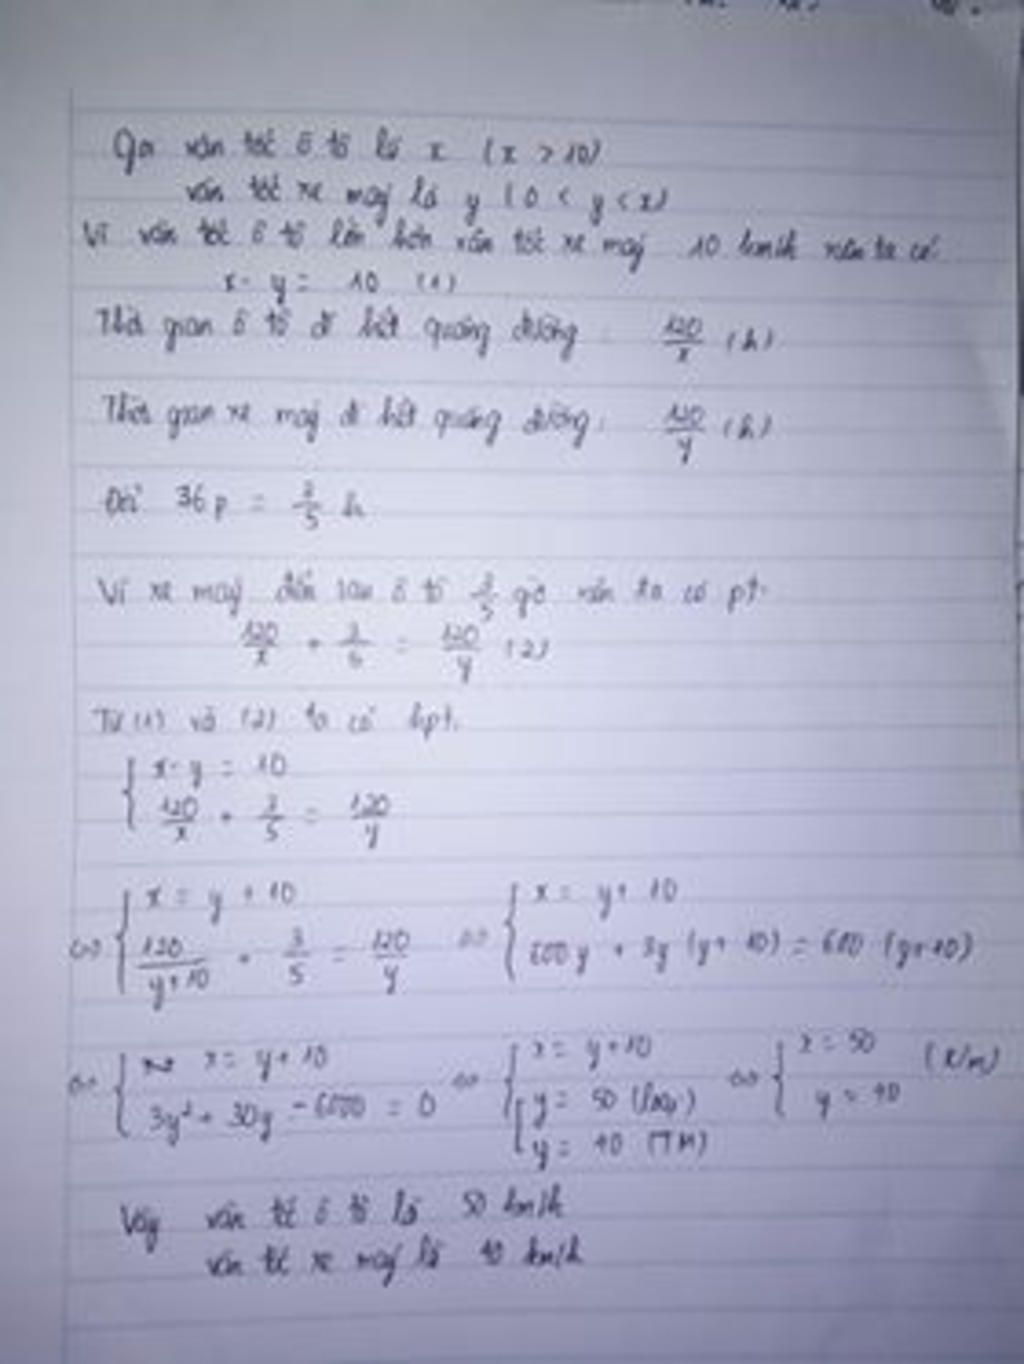 Gọi vận tốc ô tô là x (x > 10)
vận tốc xe máy là y (0 < y < x)
Vì vận tốc ô tô lớn hơn vận tốc xe máy 10 km/h nên ta có
x - y = 10 (1)
Thời gian ô tô đi hết quãng đường : 120/x (h)
Thời gian xe máy đi hết quãng đường : 120/y (h)
Đổi 36p = 3/5 h
Vì xe máy đến sau ô tô 3/5 giờ nên ta có pt.
120/x + 3/5 = 120/y (2)
Từ (1) và (2) ta có hpt.
{ x - y = 10
120/x + 3/5 = 120/y
⇔ { x = y + 10 ⇔ { x = y + 10
120/(y+10) + 3/5 = 120/y 600y + 3y (y + 10) = 600 (y+10)
⇔ { x = y + 10 ⇔ { x = y + 10 ⇔ { x = 50 (t/m)
3y² + 30y - 6000 = 0 [ y = 50 (loại) y = 40
y = 40 (TM)
Vậy vận tốc ô tô là 50 km/h
vận tốc xe máy là 40 km/h